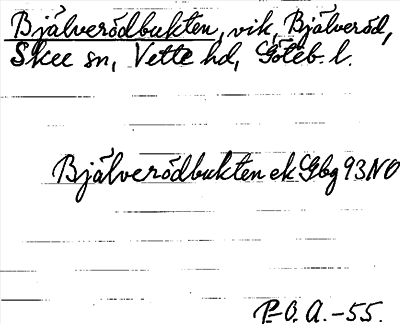 Bjälverödbukten, vik, Bjälveröd,
Skee sn, Vette hd, Göteb. l.
Bjälverödbukten ek Gbg 93 NO
P-O. A. -55.